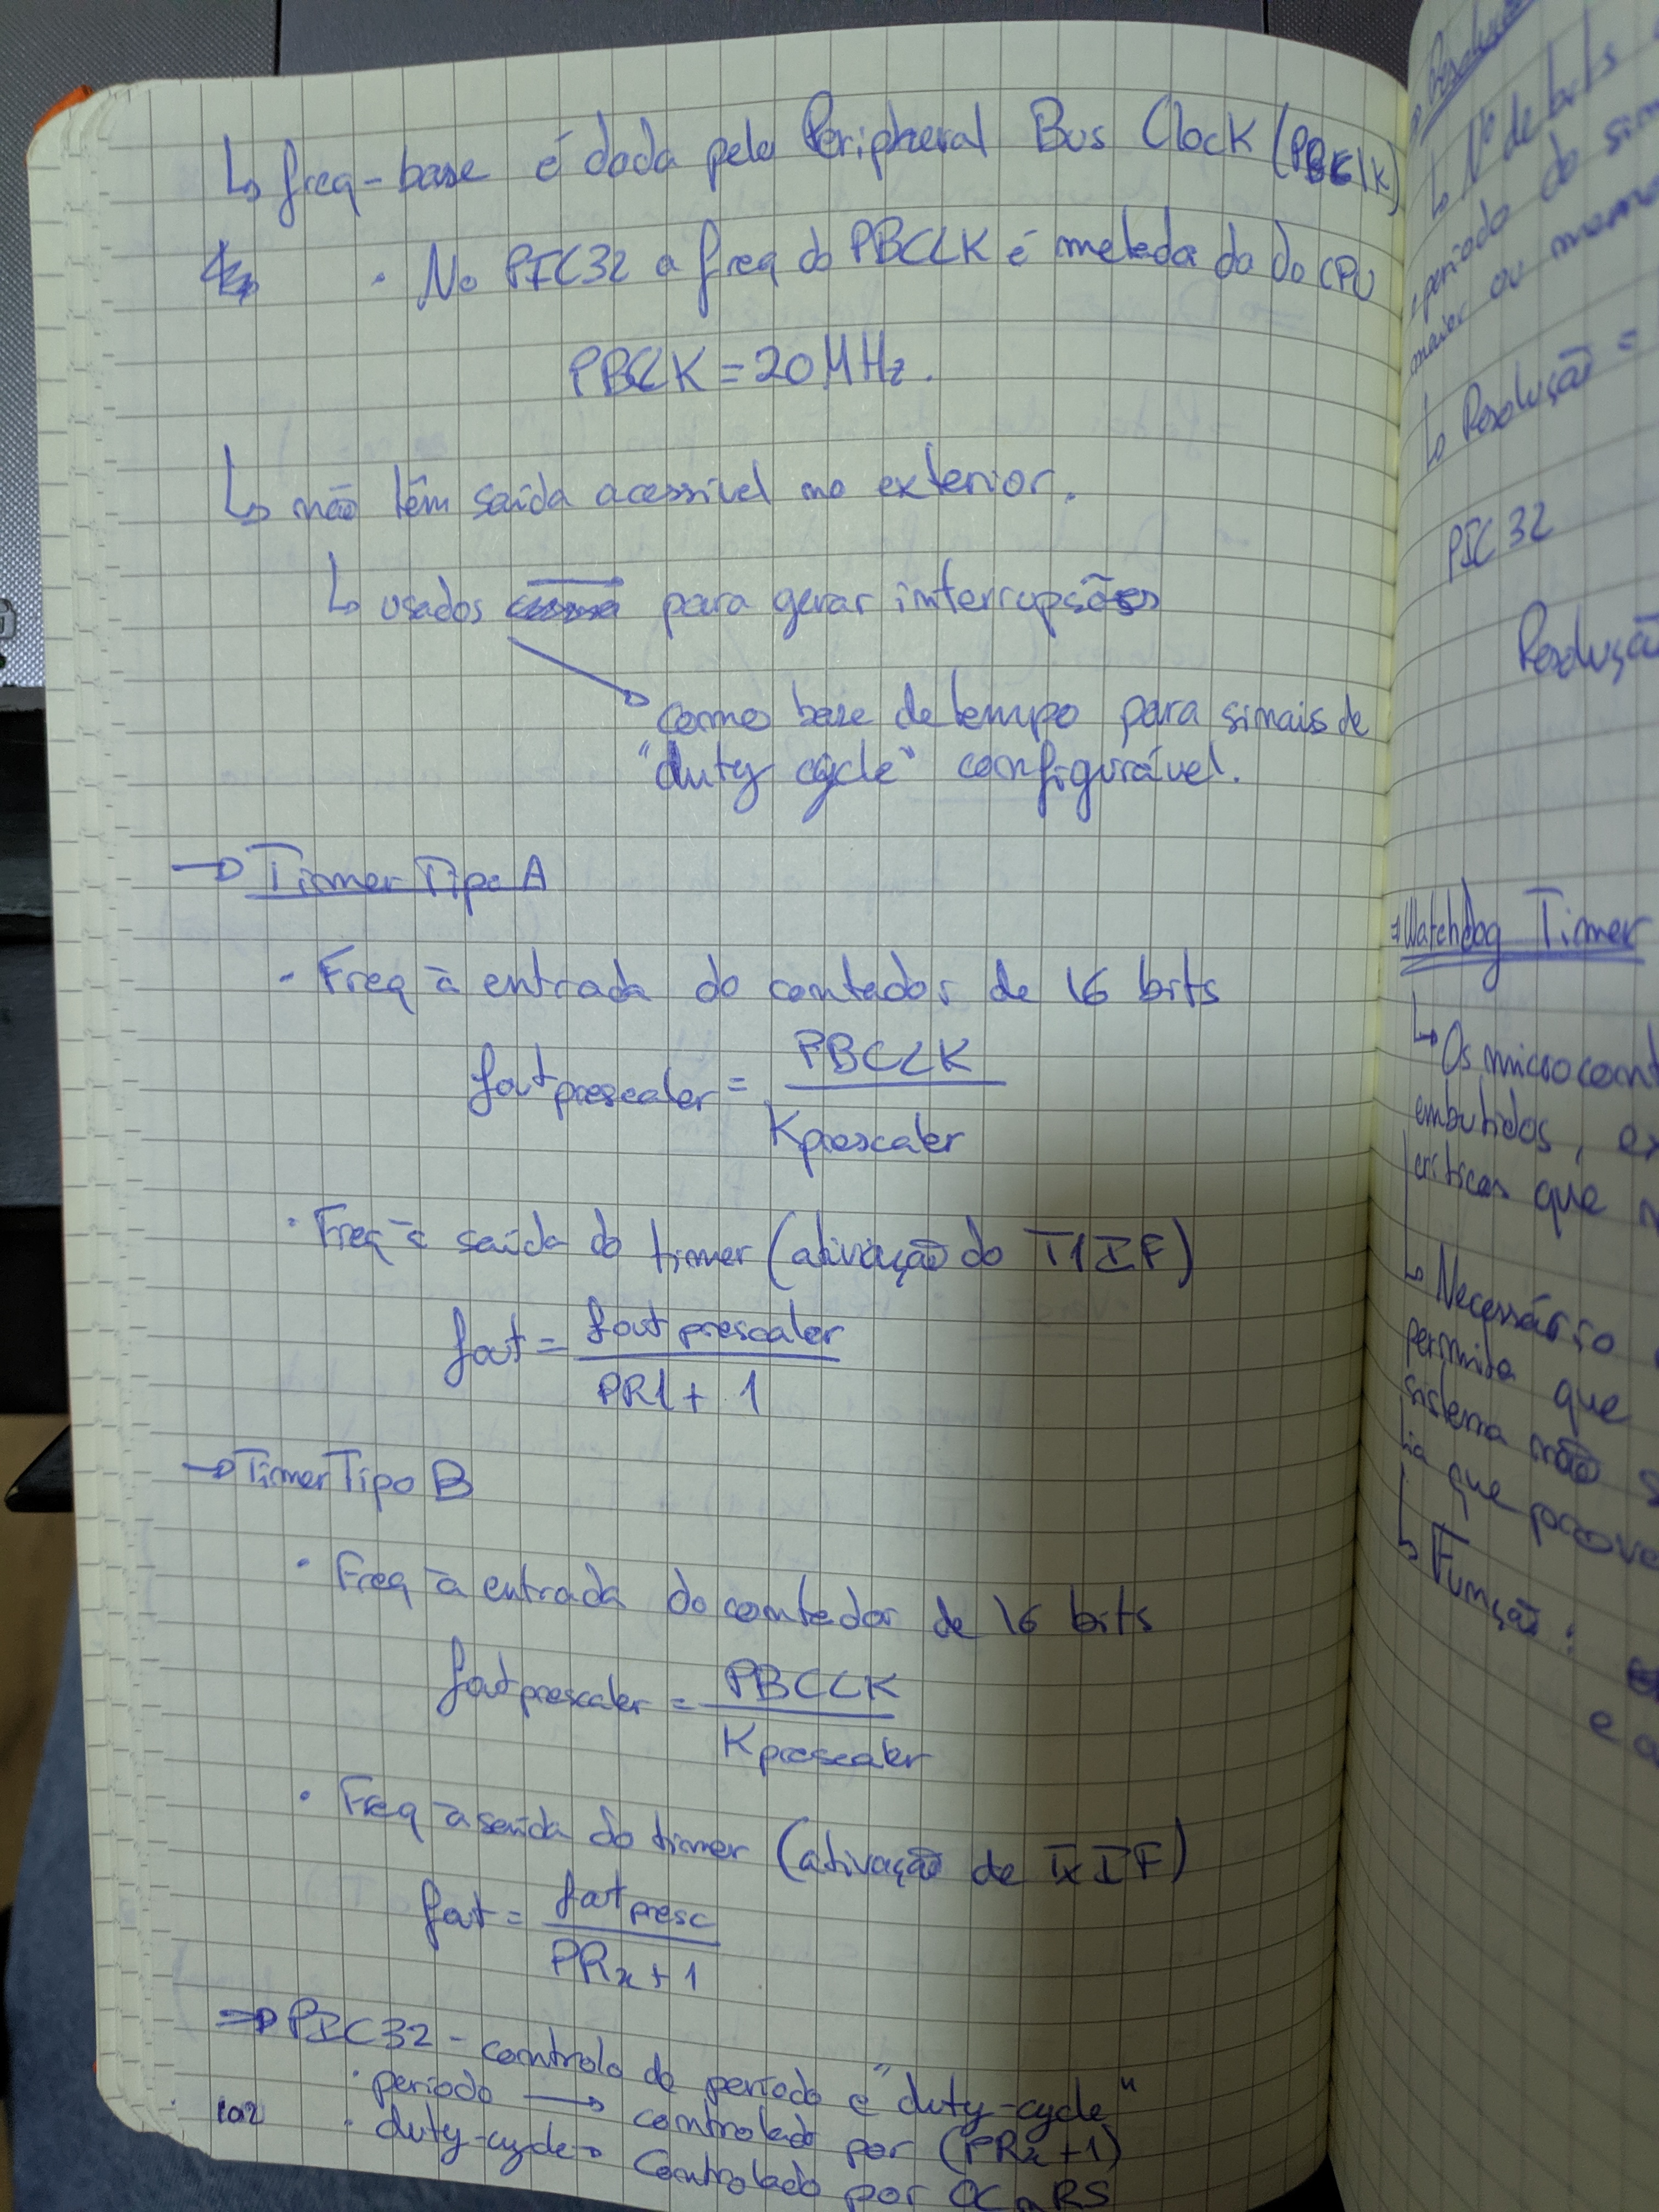 ↳ freq-base é dada pelo Peripheral Bus Clock (PBCLK)
· No PIC32 a freq do PBCLK é metada da do CPU
PBCLK = 20 MHz.
↳ não têm saída acessível no exterior.
↳ usados para gerar interrupsões
como base de tempo para sinais de
"duty cycle" configurável.
→ Timer Tipo A
- Freq à entrada do contador de 16 bits
fout prescaler = PBCLK / Kprescaler
· Freq à saída do timer (ativação do T1IF)
fout = fout prescaler / PR1 + 1
→ Timer Tipo B
· Freq à entrada do contador de 16 bits
fout prescaler = PBCLK / Kprescaler
· Freq à saída do timer (ativação de TxIF)
fout = fout presc / PRx + 1
⇒ PIC32 - controlo do período e "duty-cycle"
· período → controlado por (PRx+1)
· duty-cycle → Controlado por OCnRS
102
Nº de bits
período do
maior ou
↳ Resolução =
PIC32
Resolução
⇒ Watchdog Timer
↳ Os microcont
embutidos,
críticas que
↳ Necessário
permita que
sistema não
ia que prove
↳ Função: